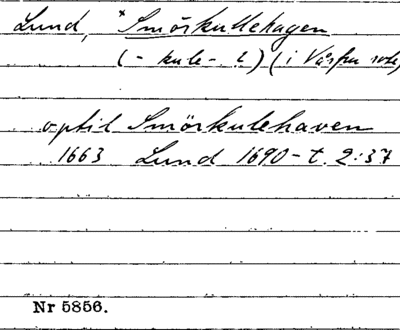 Lund, *Smörkullehagen
(-kule- ?) (i Vårfru rote)
optil Smörkulehaven
1663 Lund 1690-t. 2:37
Nr 5856.